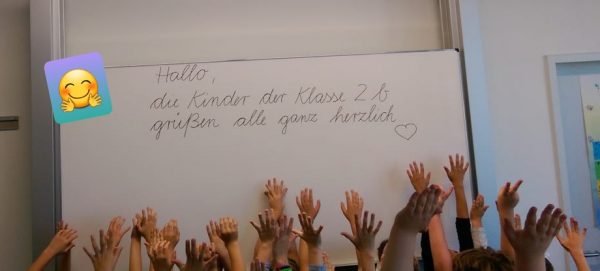 Hallo,
die Kinder der Klasse 2 b
grüßen alle ganz herzlich